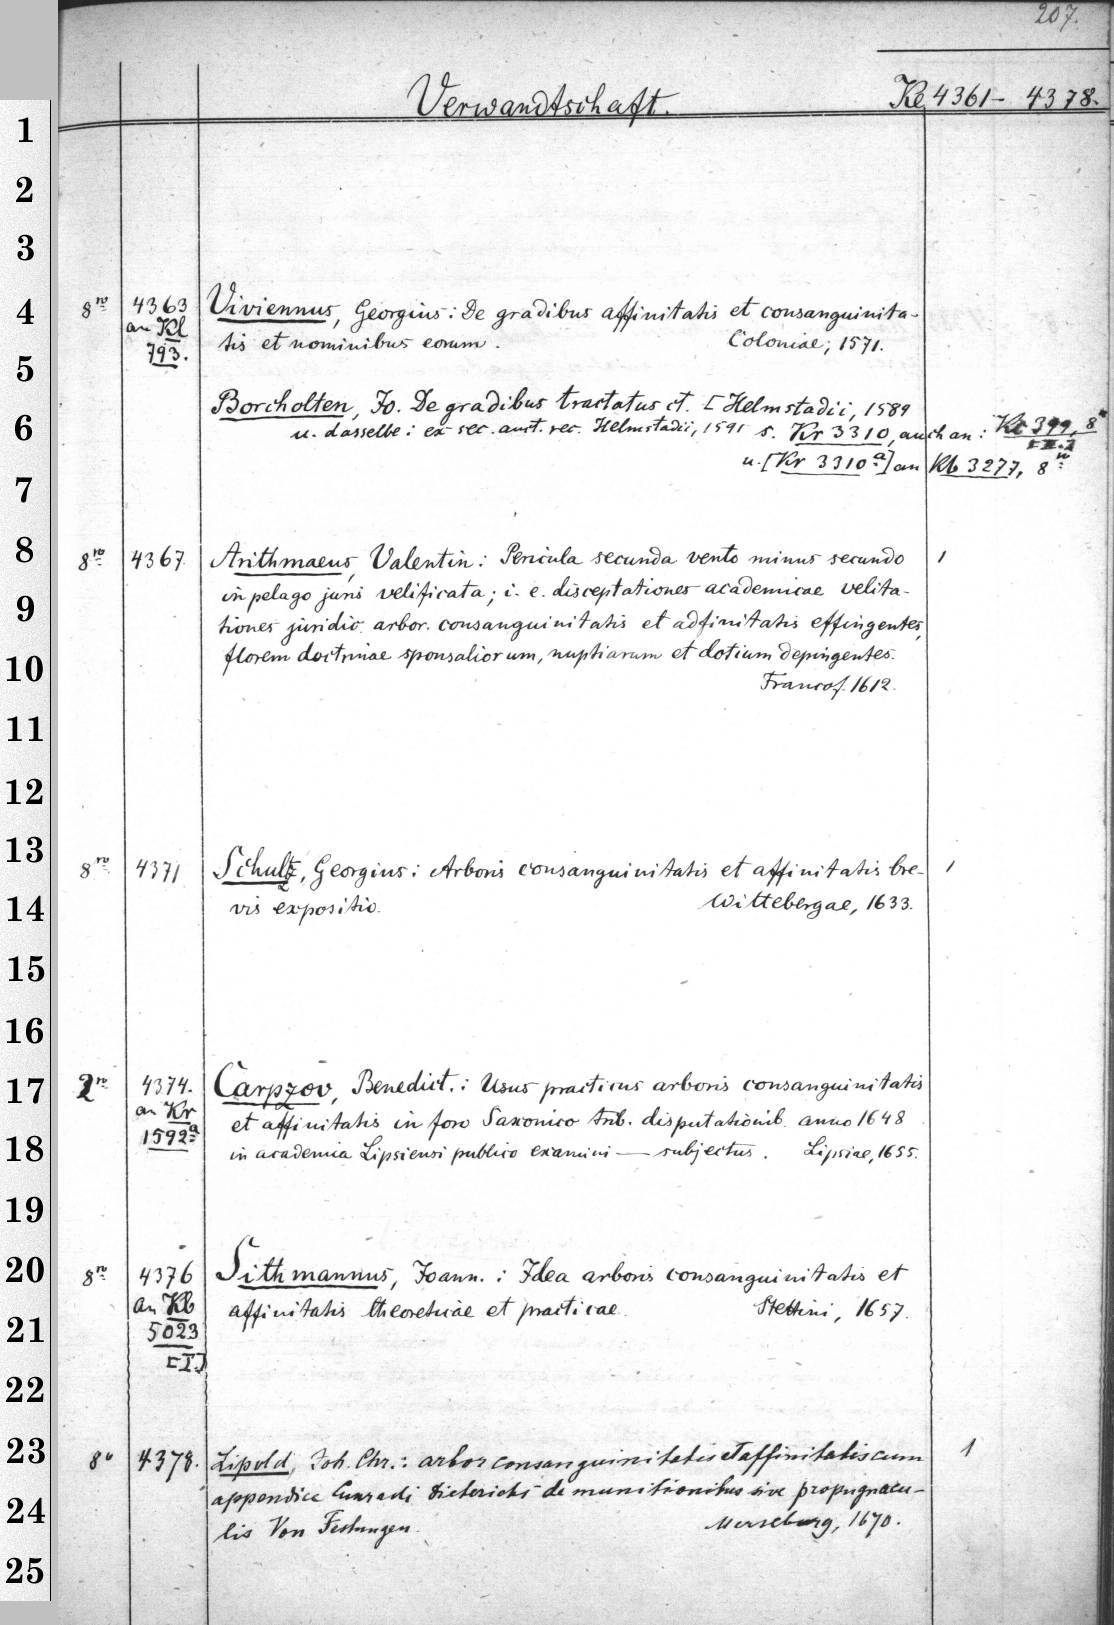 207.
Verwandtschaft. Ke 4361 – 4378.
1
2
3
4 8ro 4363 Viviennus, Georgius: De gradibus affinitatis et consanguinita-
an Kl
5 793. tis et nominibus eorum. Coloniae, 1571.
Borcholten, Jo. De gradibus tractatus ct. [Helmstadii, 1589
6 u. dasselbe: ex sec. auct. rec. Helmstadii, 1591 s. Kr 3310, auch an: 399, 8o
7 u. [Kr 3310a] an Kb 3277, 8o
8 8ro 4367. Arithmaeus, Valentin: Pericula secunda vento minus secundo 1
9 in pelago juris velificata; i. e. disceptationes academicae velita-
tiones juridic. arbor. consanguinitatis et adfinitatis effingentes,
10 florem doctrinae sponsaliorum, nuptiarum et dotium depingentes.
Francof. 1612.
11
12
13 8ro 4371 Schultz, Georgius: Arboris consanguinitatis et affinitatis bre- 1
14 vis expositio. Wittebergae, 1633.
15
16
17 2ro 4374. Carpzov, Benedict.: Usus practicus arboris consanguinitatis
an Kr et affinitatis in foro Saxonico trib. disputationib. anno 1648
18 1592a in academia Lipsiensi publico examini — subjectus. Lipsiae, 1655.
19
20 8ro 4376 Sithmannus, Joann.: Idea arboris consanguinitatis et
an Kb affinitatis theoreticae et practicae. Stettini, 1657.
21 5023
[I.]
22
23 8o 4378. Lipold, Joh. Chr.: arbor consanguinitatis et affinitatis cum 1
24 appendice Cunradi Dieterichs de munitionibus sive propugnacu-
lis Von Festungen. Merseburg, 1670.
25